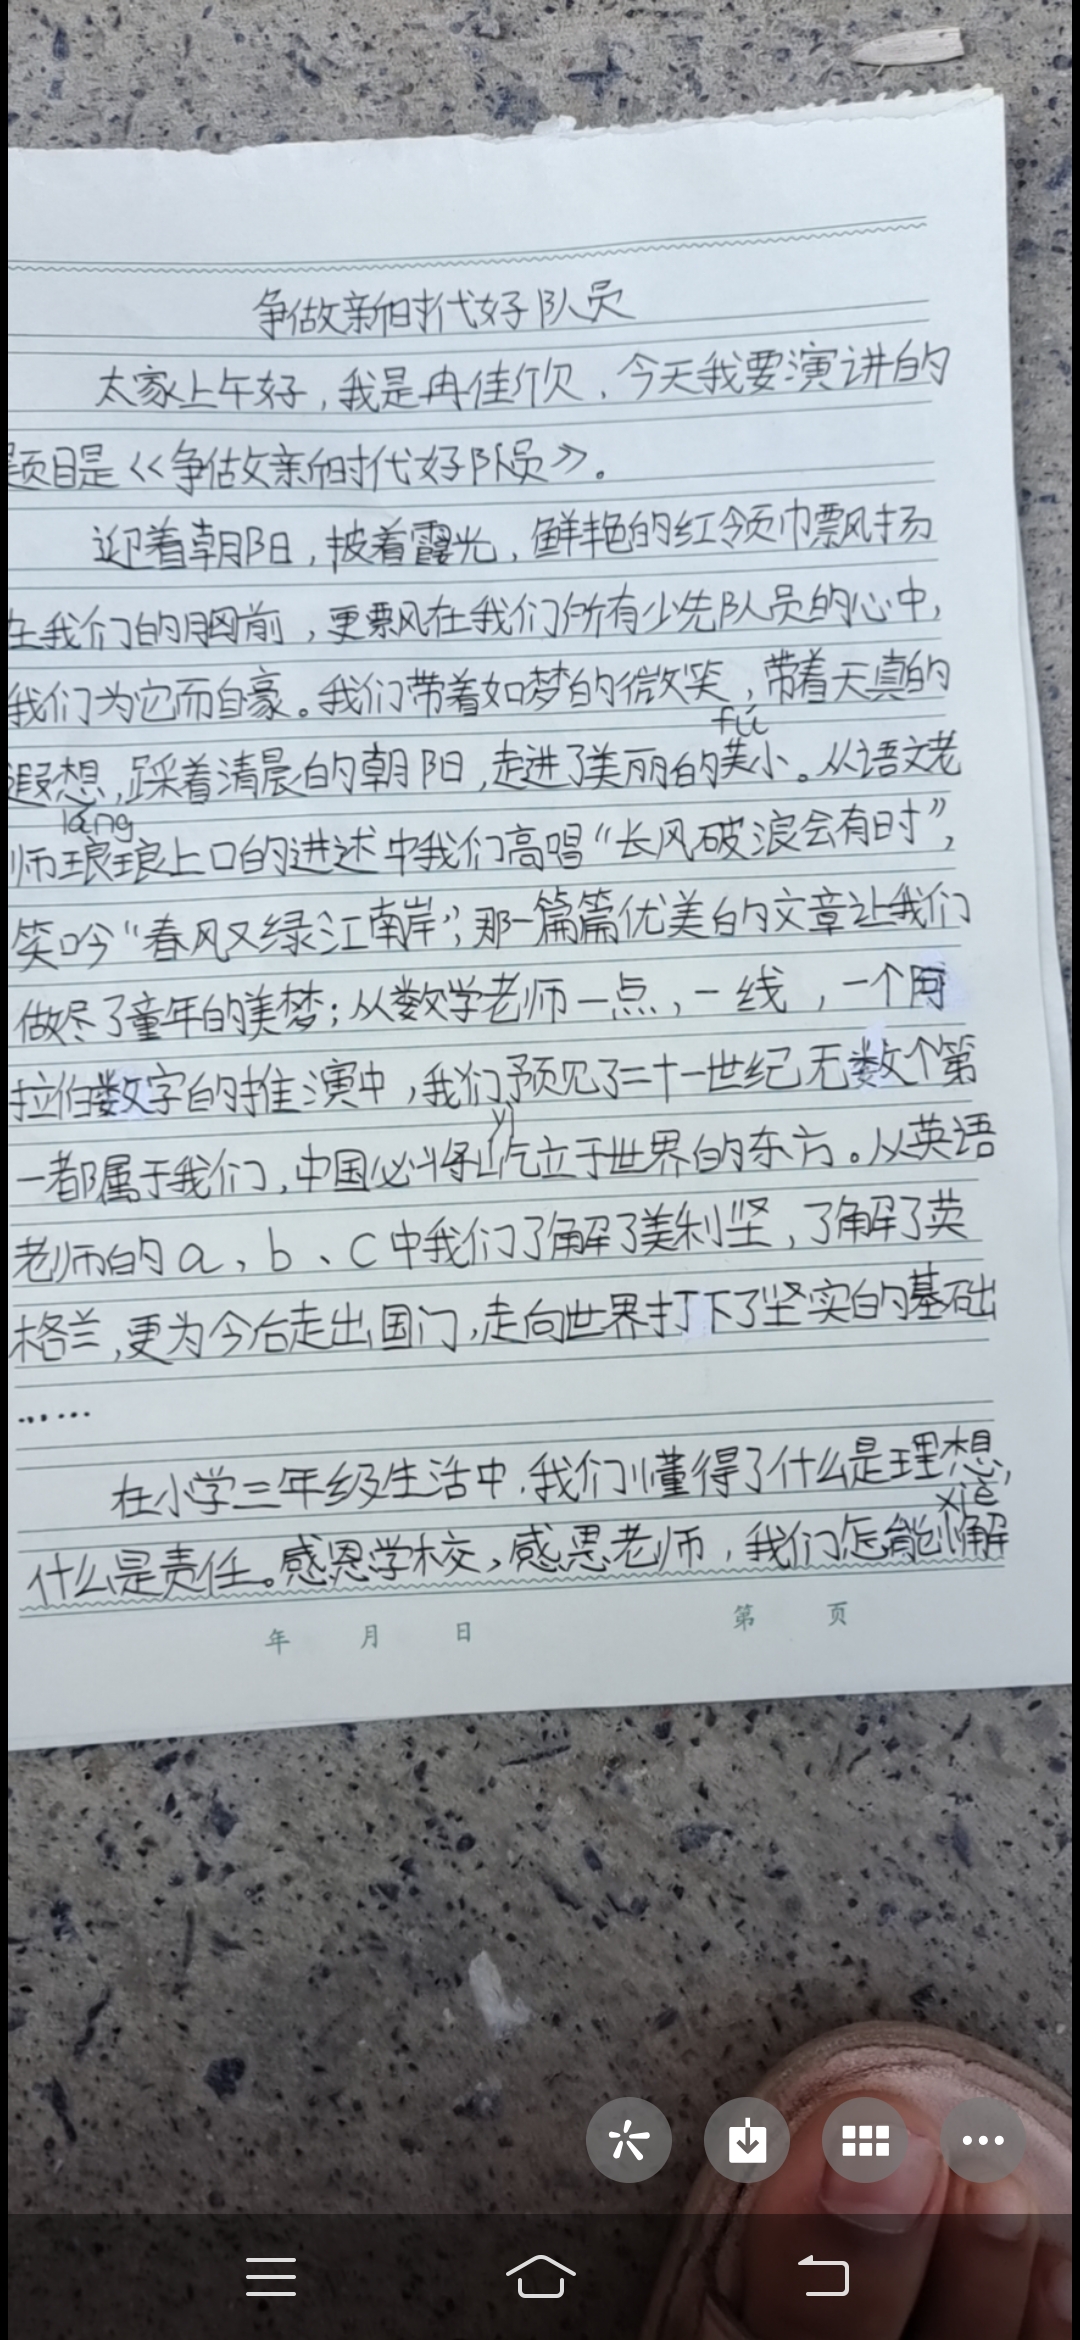 争做新时代好队员
大家上午好，我是冉佳欣，今天我要演讲的
题目是《争做新时代好队员》。
迎着朝阳，披着霞光，鲜艳的红领巾飘扬
在我们的胸前，更飘在我们所有少先队员的心中，
我们为它而自豪。我们带着如梦的微笑，带着天真的
fú
遐想，踩着清晨的朝阳，走进了美丽的芙小。从语文老
láng
师琅琅上口的讲述中我们高唱“长风破浪会有时”，
笑吟“春风又绿江南岸”；那一篇篇优美的文章让我们
做尽了童年的美梦；从数学老师一点，一线，一个阿
拉伯数字的推演中，我们预见了二十一世纪无数个第
yì
一都属于我们，中国必将屹立于世界的东方。从英语
老师的a、b、c中我们了解了美利坚，了解了英
格兰，更为今后走出国门，走向世界打下了坚实的基础
……
在小学三年级生活中，我们懂得了什么是理想，
xiè
什么是责任。感恩学校，感恩老师，我们怎能懈
年 月 日 第 页